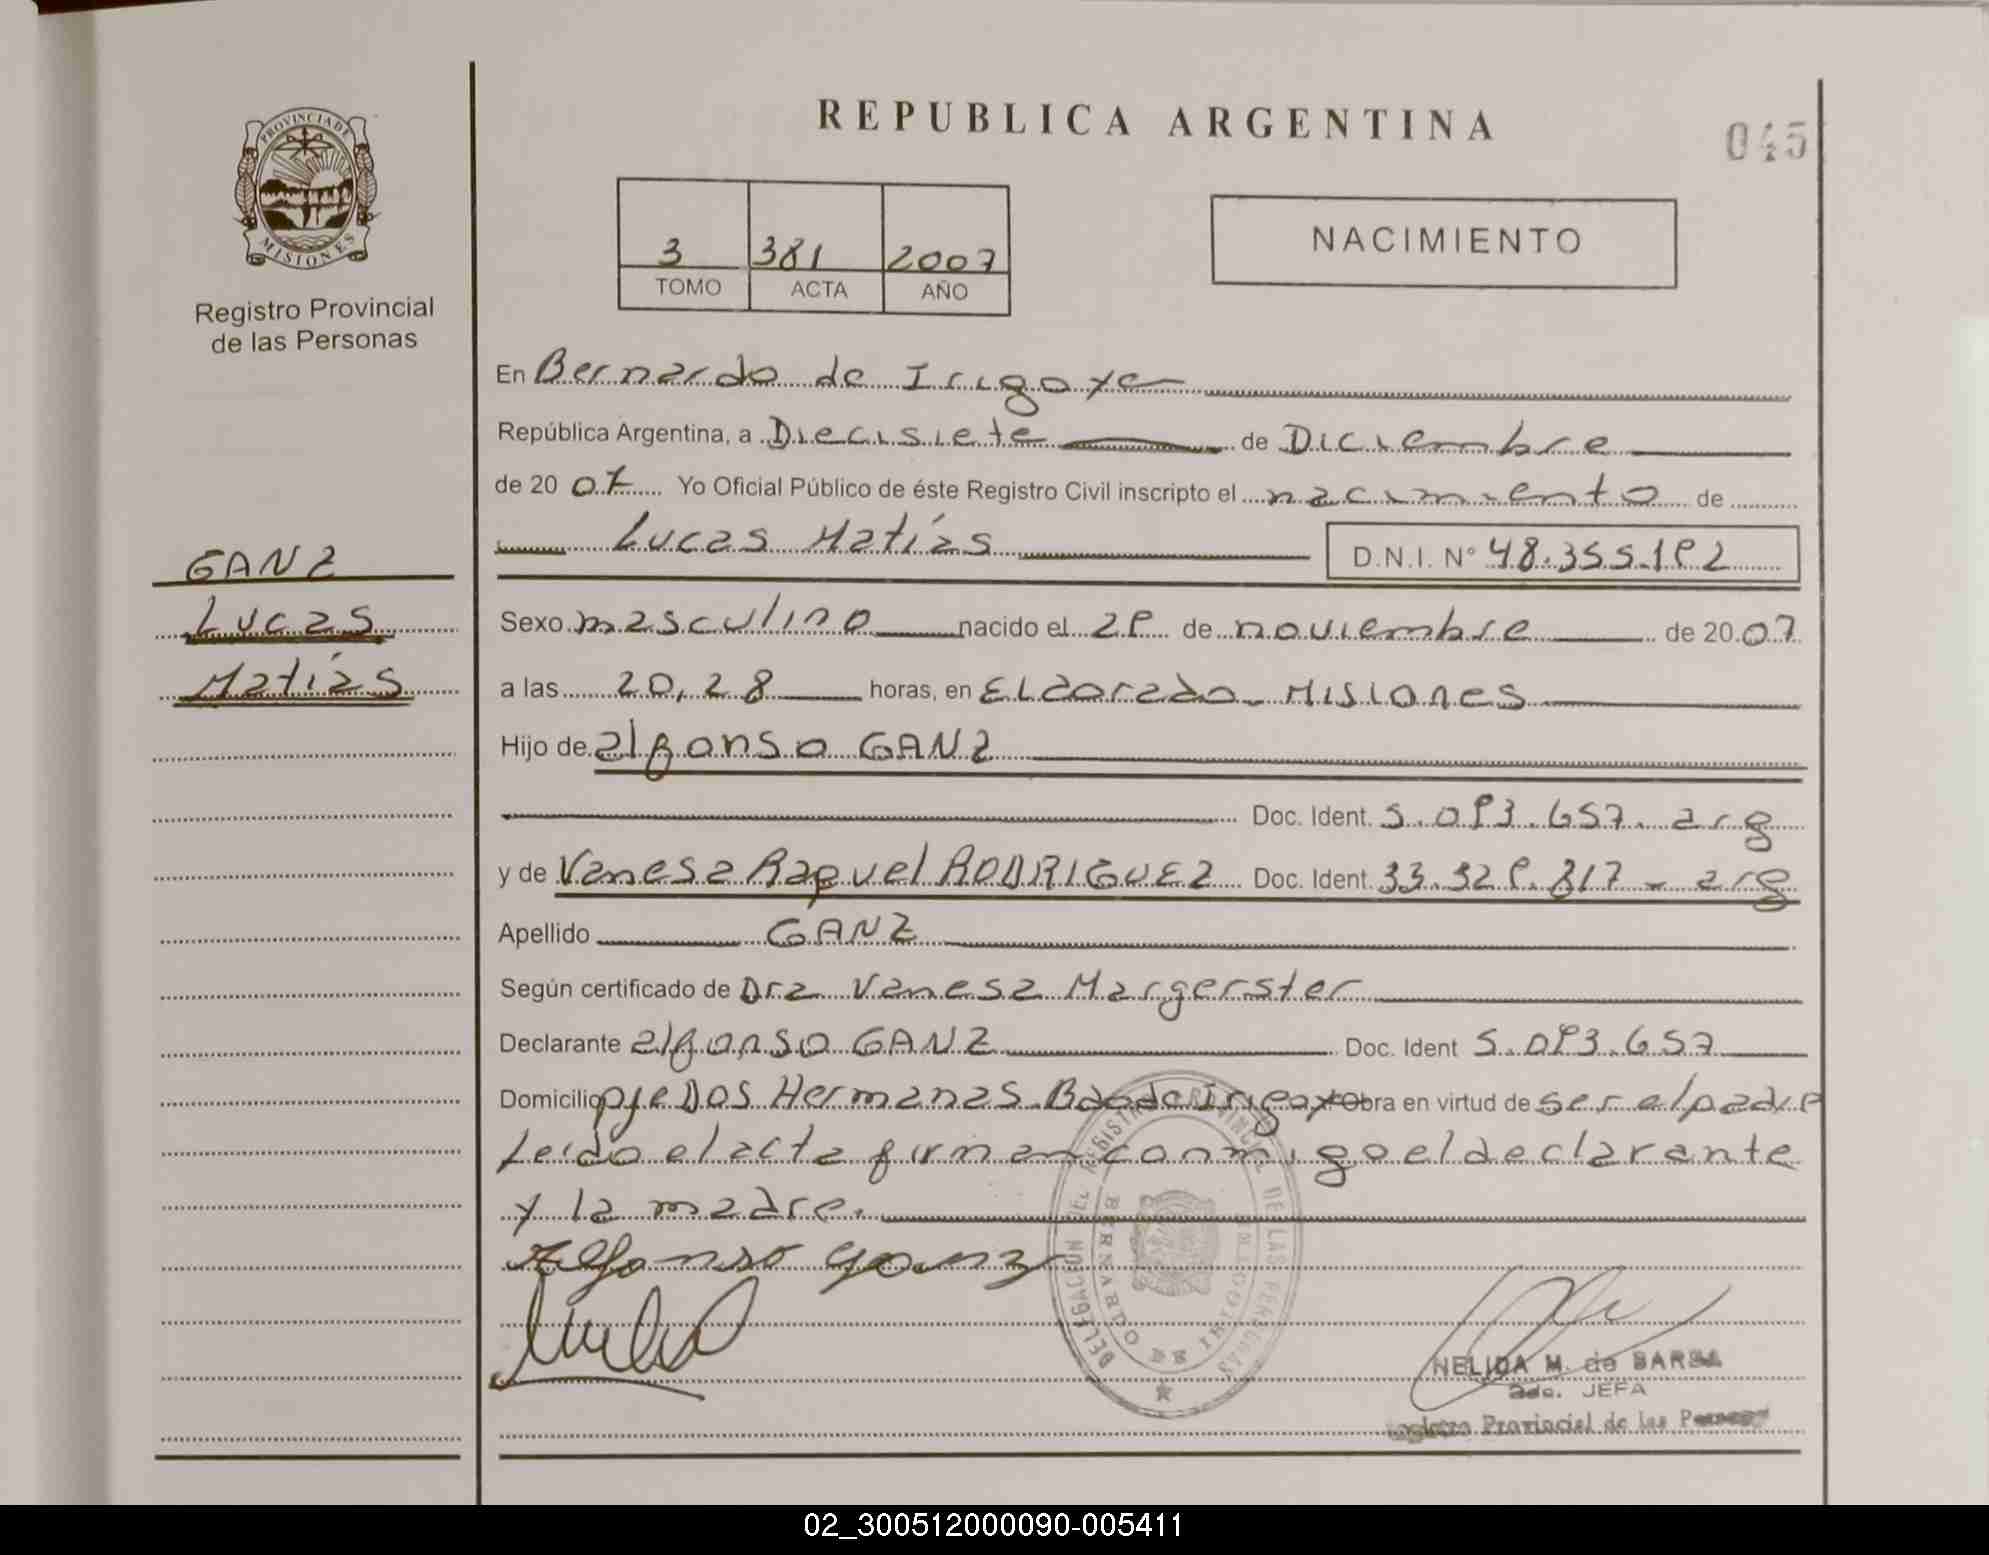 REPUBLICA ARGENTINA
045
PROVINCIA DE
MISIONES
Registro Provincial
de las Personas
3 381 2007
TOMO ACTA AÑO
NACIMIENTO
En Bernardo de Irigoyen
República Argentina, a Diecisiete de Diciembre
de 20 07 Yo Oficial Público de éste Registro Civil inscripto el nacimiento de
Lucas Matías D.N.I. Nº 48.355.192
GANZ
Lucas
Matías
Sexo masculino nacido el 29 de noviembre de 20 07
a las 20,28 horas, en Eldorado - Misiones
Hijo de alfonso GANZ
Doc. Ident. 5.093.657. arg
y de Vanesa Raquel RODRIGUEZ Doc. Ident. 33.329.817 - arg
Apellido GANZ
Según certificado de Dra Vanesa Margerster
Declarante alfonso GANZ Doc. Ident 5.093.657
Domicilio pje Dos Hermanas Bdo de Irigoy Obra en virtud de ser el padre
Leído el acta firman conmigo el declarante
y la madre.
Alfonso ganz
DELEGACION DEL REGISTRO PROVINCIAL DE LAS PERSONAS
BERNARDO DE IRIGOYEN
NELIDA M. de
2da. JEFA
Provincial de las
02_300512000090-005411